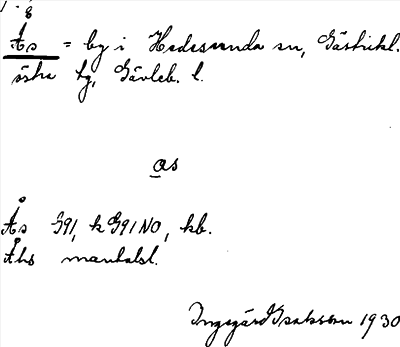 Ås = by i Hedesunda sn, Gästrikl.
östra tg, Gävleb. l.
ɑs
Ås G91, k G91 NO, kb.
Åhs mantalsl.
Ingegärd Isaksson 1930